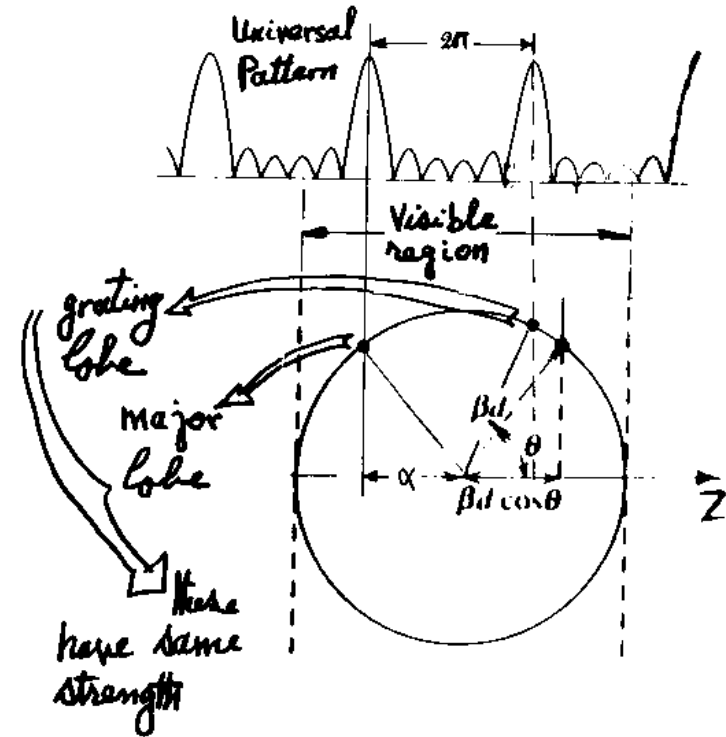 Universal
Pattern
2π
Visible
region
grating
lobe
major
lobe
βd
θ
α
βd cosθ
Z
these
have same
strength